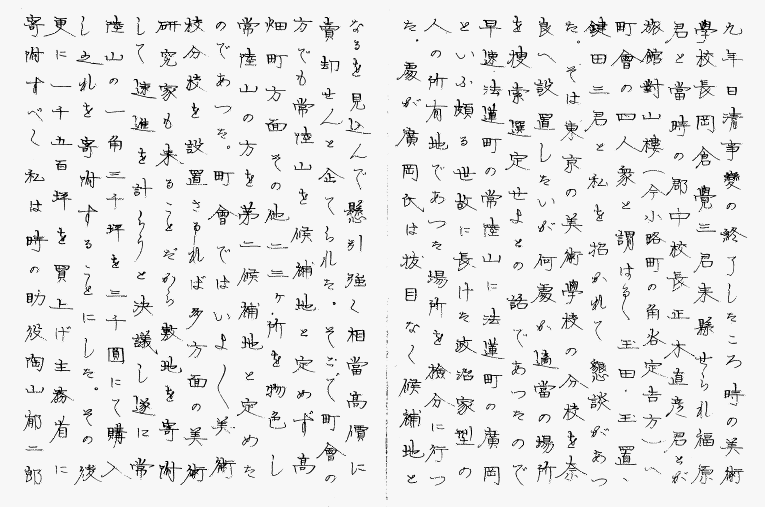 九年日清事変の終了したころ時の美術
学校長岡倉覚三君来県せられ福原
君と当時の郡中校長正木直彦君とが
旅館対山楼(今小路町の角谷定吉方)へ
町会の四人衆と謂はるゝ玉田・玉置、
鍵田三君と私を招かれて懇談があつ
た。そは東京の美術学校の分校を奈
良へ設置したいが何処が適当の場所
を捜索選定せよとの話であつたので
早速法蓮町の常陸山に法蓮町の広岡
といふ頗る世故に長けた政治家型の
人の所有地であつた場所を検分に行つ
た。処が広岡氏は抜目なく候補地と
なるを見込んで懸引強く相当高価に
売却せんと企てられた。そこで町会の
方でも常陸山を候補地と定めず高
畑町方面その他二三ヶ所を物色し
常陸山の方を第二候補地と定めた
のであつた。町会ではいよ〱美術
校分校を設置さるれば多方面の美術
研究家も来ることだから敷地を寄附
して速進を計らうと決議し遂に常
陸山の一角三千坪を三千円にて購入
し之れを寄附することにした。その後
更に一千五百坪を買上げ主務省に
寄附すべく私は時の助役陶山郁二郎